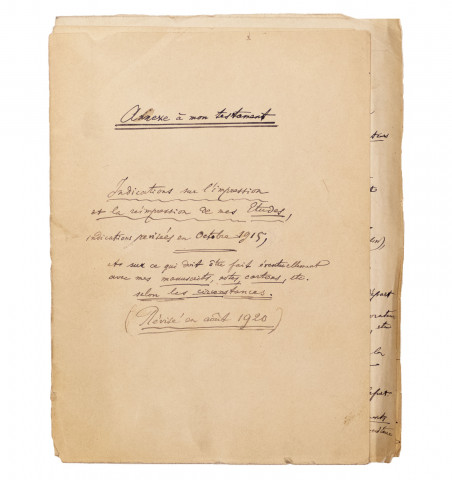 Annexe à mon testament
Indications sur l'impression
et la réimpression de mes Etudes,
indications révisées en Octobre 1915,
et sur ce qui doit être fait éventuellement
avec mes manuscrits, notes, cartons, etc.
selon les circonstances.
(Révisé en août 1920)